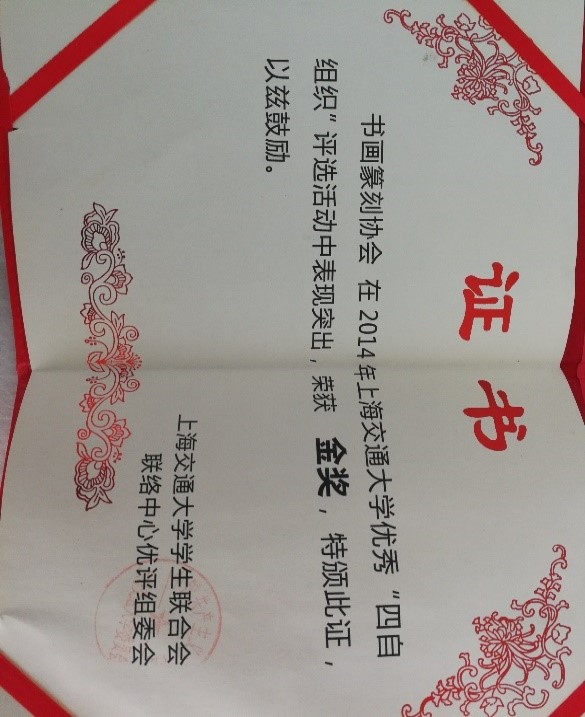 证书
书画篆刻协会 在2014年上海交通大学优秀“四自
组织”评选活动中表现突出，荣获 金奖，特颁此证，
以兹鼓励。
上海交通大学学生联合会
联络中心优评组委会